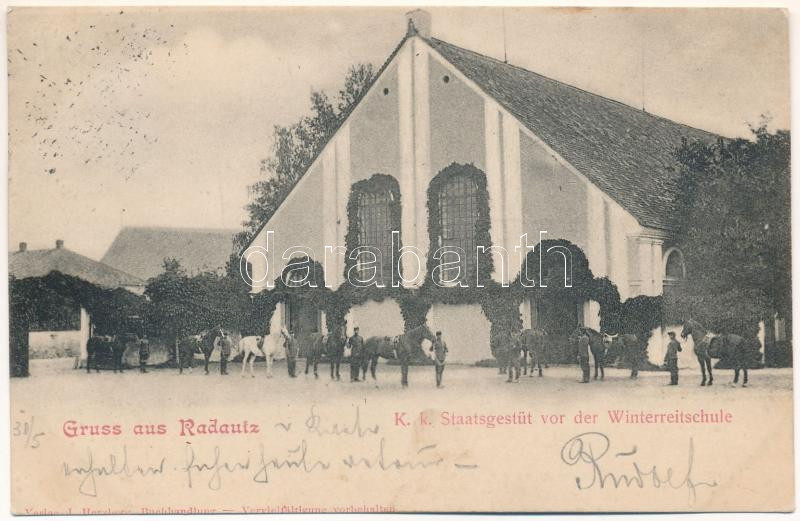 darabanth
Gruss aus Radautz
K. k. Staatsgestüt vor der Winterreitschule
30/5
erhalten
heute retour —
Rudolf
Verlag J. Herzberg, Buchhandlung — Vervielfältigung vorbehalten